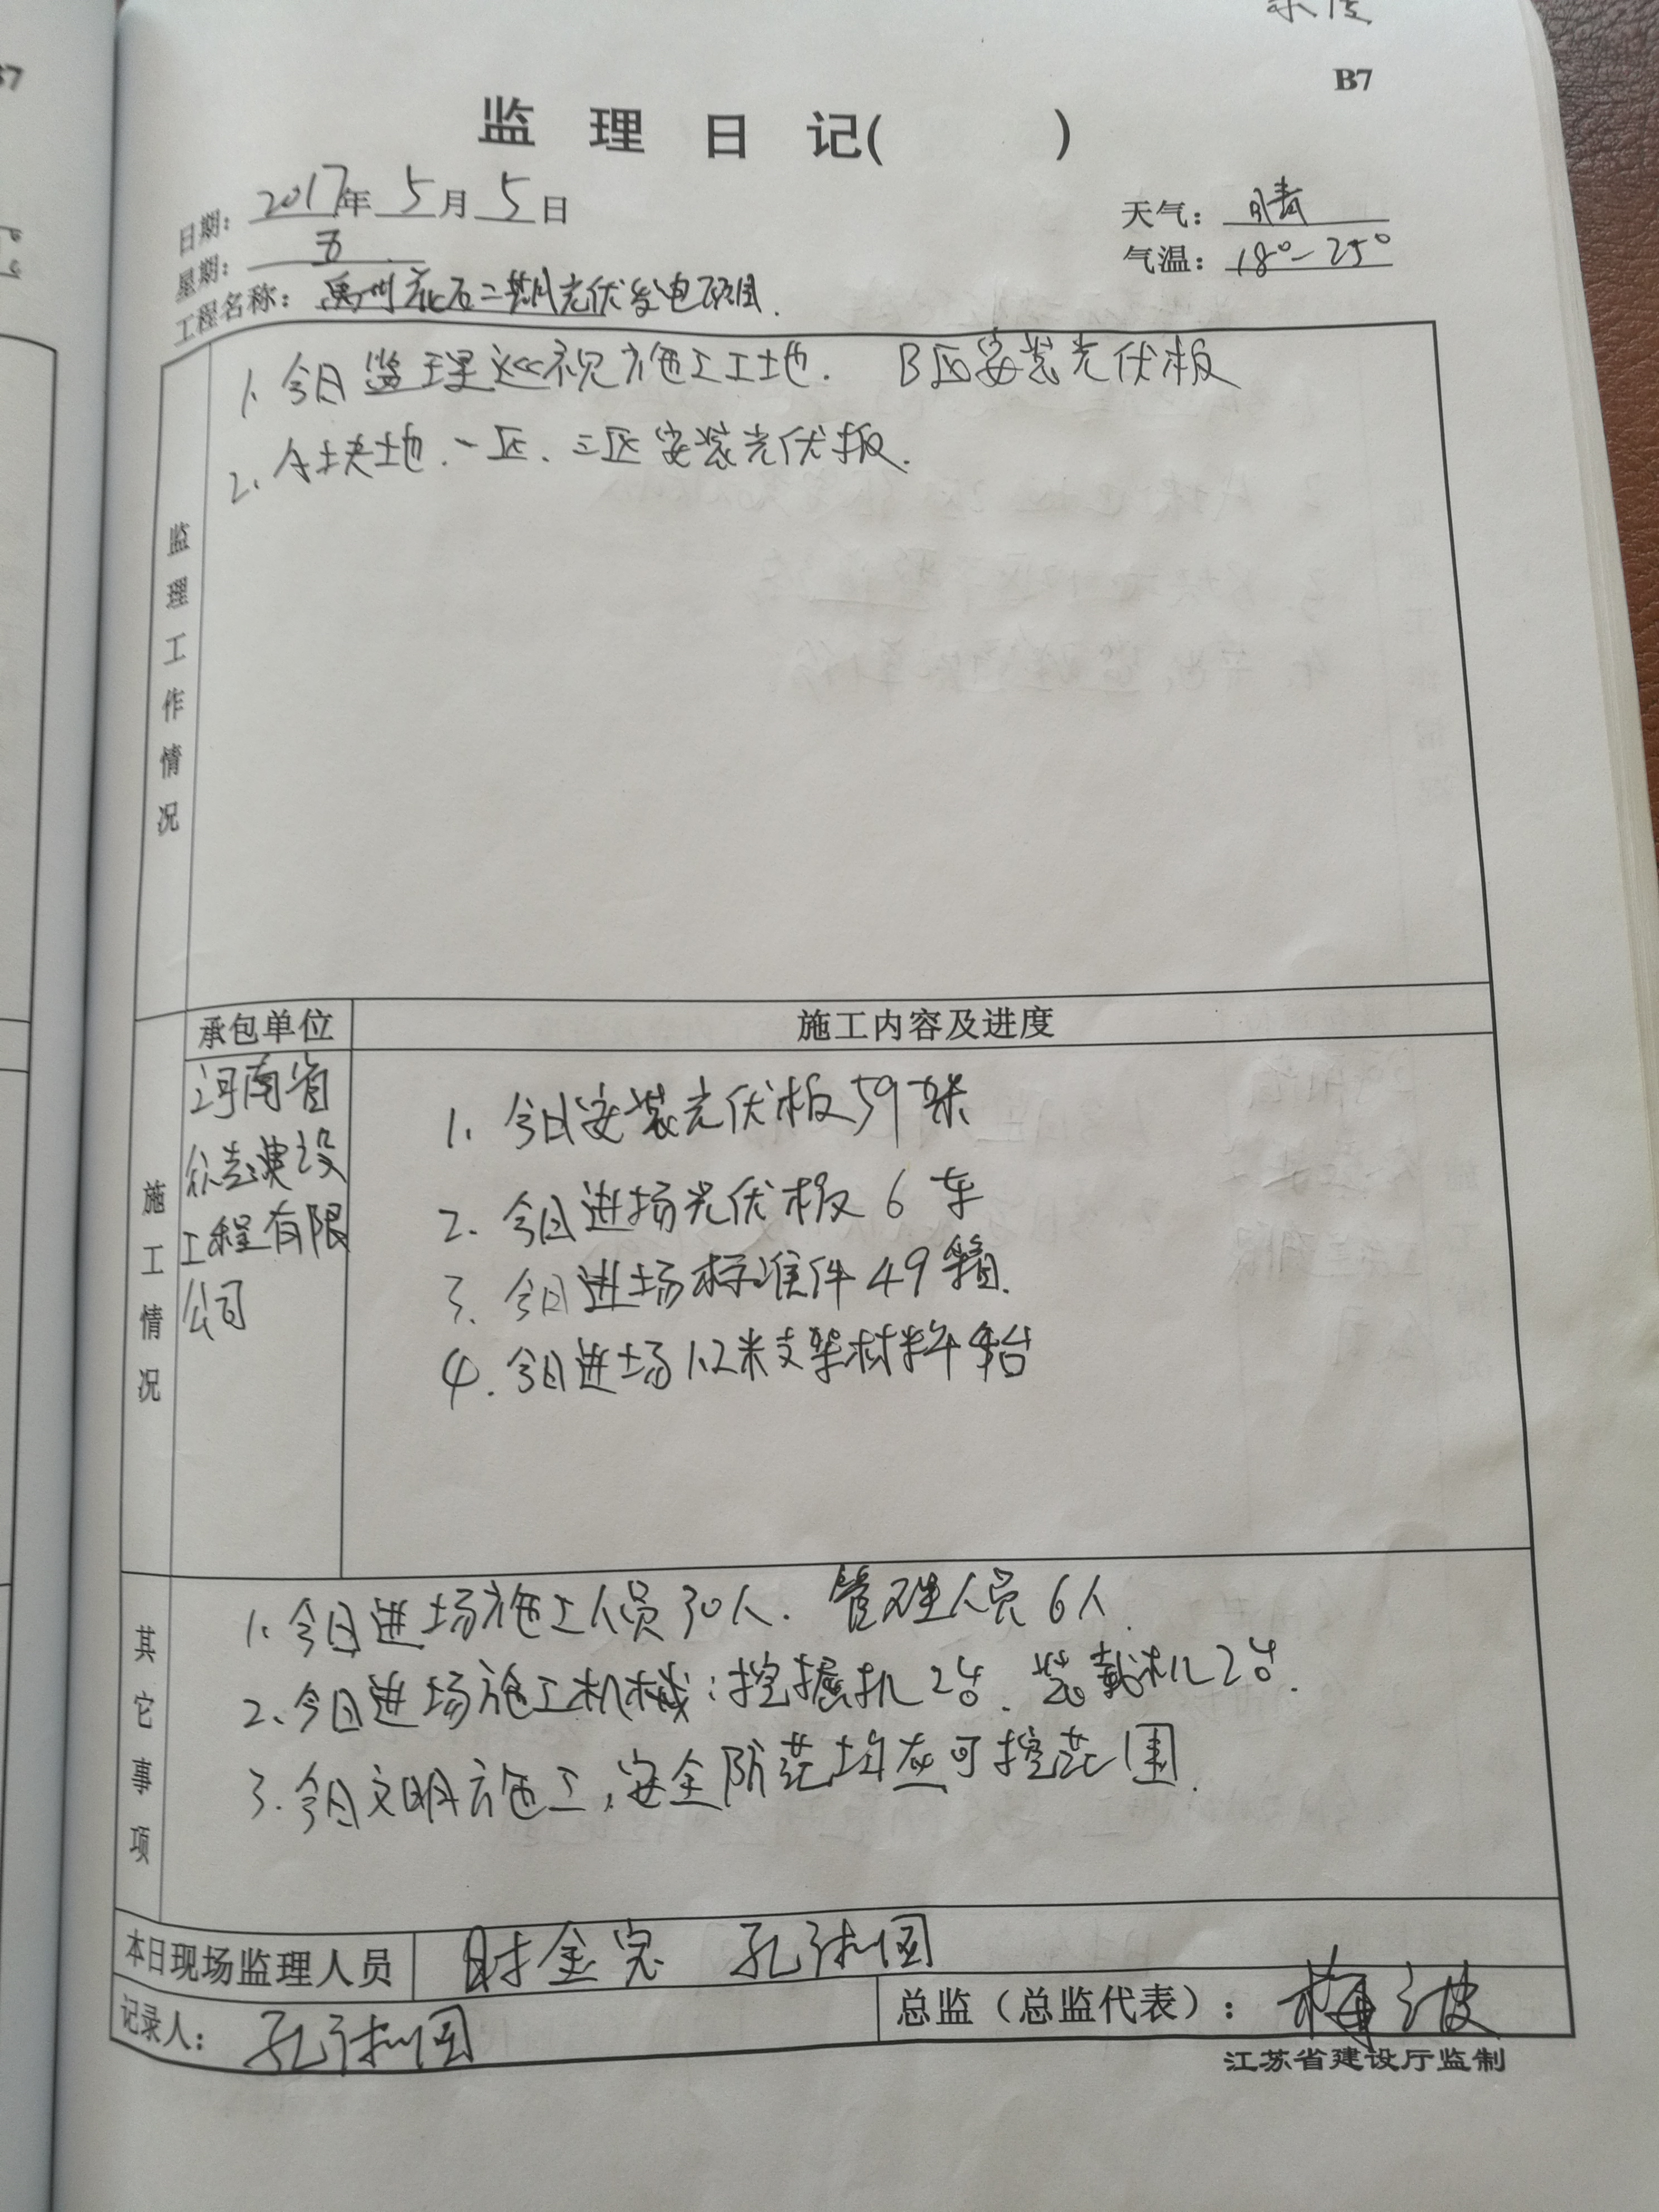 B7
监 理 日 记( )
日期: 2017年 5月 5日
天气: 晴
星期: 五
气温: 18°-25°
工程名称: 禹州花石二期光伏发电项目.
监理工作情况
1. 今日监理巡视施工工地. B区安装光伏板
2. A块地.一区、三区安装光伏板.
承包单位
施工内容及进度
施工情况
河南省
建设
工程有限
公司
1. 今日安装光伏板59块
2. 今日进场光伏板6车
3. 今日进场标准件49箱.
4. 今日进场1.2米支架材料
其它事项
1. 今日进场施工人员30人. 管理人员6人.
2. 今日进场施工机械:挖掘机2台、装载机2台.
3. 今日文明施工,安全防范均在可控范围.
本日现场监理人员
时金
孔 国
记录人: 孔 国
总监(总监代表): 梅波
江苏省建设厅监制